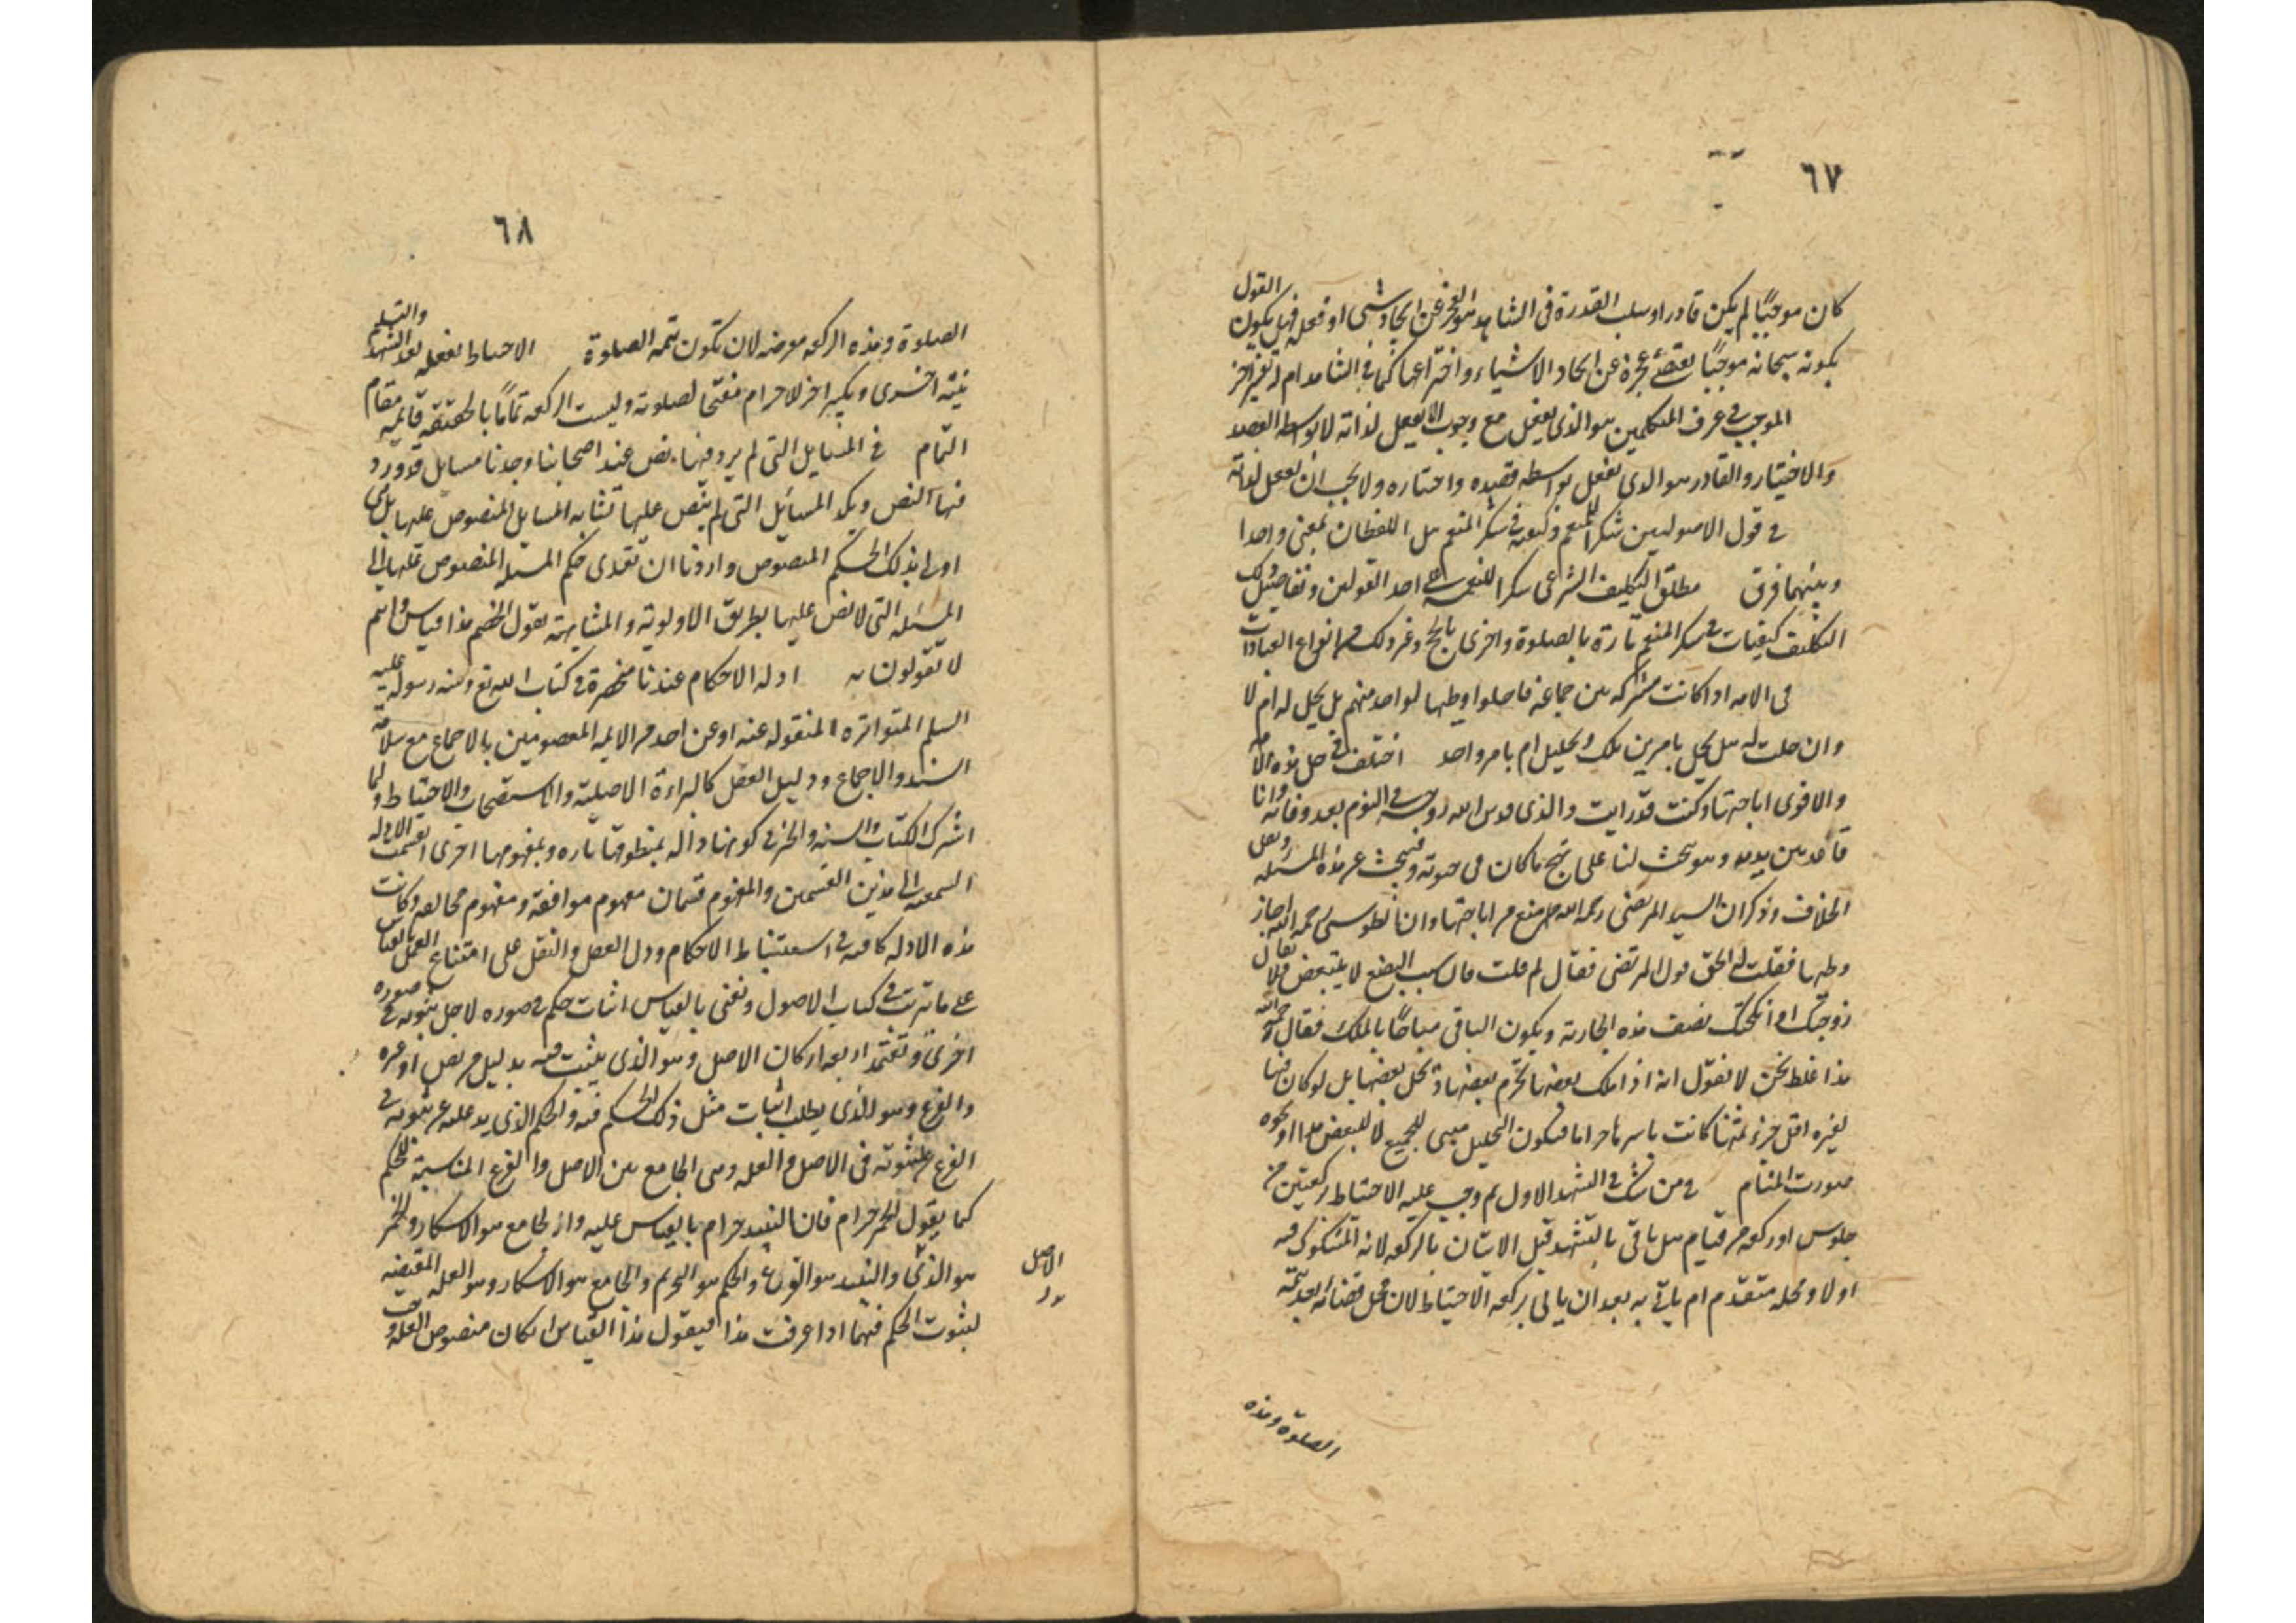 ٦٧
كان موجبًا لم يكن قادرا وسلب القدرة في الشاهد هو العجز عن ايجاد شى او فعله فهل يكون القول
بكونه سبحانه موجبًا يقتضي عجزه عن ايجاد الاشياء واختراعها كما في الشاهد ام له تفسير اخر
الموجب في عرف المتكلمين هو الذى يفعل مع وجوب ان يفعل لذاته لا بواسطه القصد
والاختيار والقادر هو الذى يفعل بواسطه قصده واختياره ولا يجب ان يفعل لذاته
في قول الاصوليين شكرا للمنعم وكيفيه في شكر المنعم هل اللفظان بمعنى واحدا
وبينهما فرق مطلق التكليف الشرعى شكرا للنعمه على احد القولين وتفاصيل ذلك
التكليف كيفيات في شكر المنعم تارة بالصلوة واخرى بالحج وغير ذلك من انواع العبادات
فى الامه اذا كانت مشتركه بين جماعة فاحلوا وطيها لواحد منهم هل يحل له ام لا
وان حلت له هل يحل بامرين ملك وتحليل ام بامر واحد اختلف في حل هذه الامه
والاقوى اباحتها وكنت قد رايت والدى قدس الله روحه في النوم بعد وفاته وانا
قاعد بين يديه وهو يبحث لنا على نهج ما كان فى حيوته فبحث عن هذه المسئله ونقل
الخلاف وذكر ان السيد المرتضى رحمه الله منع من اباحتها وان الطوسى رحمه الله اجاز
وطيها فقلت له الحق قول المرتضى فقال لم قلت قال سبب البضع لا يتبعض فلا يقال
زوجتك او انكحتك نصف هذه الجارية ويكون الباقى مباحًا بالملك فقال رحمه الله
هذا غلط نحن لا نقول انه اذا ملك بعضها تحرم بعضها ويحل بعضها بل لو كان فيها
لغيره اقل جزء منها كانت باسرها حراما فيكون التحليل مبيح للجميع لا للبعض هذا او نحوه
صورت المنام في من شك في التشهد الاول ثم وجب عليه الاحتياط ركعتين من
جلوس او ركعه من قيام هل ياتى بالتشهد قبل الاتيان بالركعه لانه المشكوك فيه
اولا ومحله متقدم ام ياتى به بعد ان ياتى بركعه الاحتياط لان محل قضائه بعد تتمه
الصلوة وهذه
٦٨
الصلوة وهذه الركعه معرضه لان تكون تتمه الصلوة الاحتياط يفعله بعد التشهد والتسليم
بنيّة اخرى وتكبير اخر لاحرام مفتتحا لصلوته وليست الركعه تمامًا بالحقيقة قايمه مقام
التمام في المسايل التى لم يرد فيها نص عند اصحابنا وجدنا مسايل قد ورد
فيها النص وتكون المسائل التى لم ينص عليها تشابه المسايل المنصوص عليها بل هى
اولى بذلك الحكم المنصوص واردنا ان نعدى حكم المسئله المنصوص عليها الى
المسئله التى لا نص عليها بطريق الاولوية والمشابهة يقول الخصم هذا قياس وانتم
لا تقولون به ادله الاحكام عندنا منحصرة في كتاب الله تع وسنه رسوله عليه
السلم المتواتره المنقوله عنه او عن احد من الايمه المعصومين بالاحماع مع سلامة
السند والاجماع ودليل العقل كالبراءة الاصلية والاستصحاب والاحتياط ولما
اشترك الكتاب والسنه والخبر في كونها داله بمنطوقها تاره وبمفهومها اخرى انقسمت الادله
السمعيه الى هذين القسمين والمفهوم قسمان مفهوم موافقة ومفهوم مخالفه وكانت
هذه الادله كافيه في استنباط الاحكام ودل العقل والنقل على امتناع العمل بالقياس
على ما ترتب في كتاب الاصول ونعنى بالقياس اثبات حكم في صوره لاجل ثبوته في صوره
اخرى وتعتمد اربعه اركان الاصل وهو الذى يثبت فيه بدليل من نص او غيره
والفرع وهو الذى يطلب اثبات مثل ذلك الحكم فيه والحكم الذى يدعى ثبوته في
الفرع ثبوته فى الاصل والعله وهى الجامع بين الاصل والفرع المناسبة للحكم
كما يقول الخمر حرام فان النبيذ حرام بالقياس عليه والجامع هو الاسكار والخمر
هو الذى والنبيذ هو الفرع والحكم هو التحريم والجامع هو الاسكار وهو العله المقتضيه
الاصل
لثبوت الحكم فيهما اذا عرفت هذا فيقول هذا القياس ان كان منصوص العله